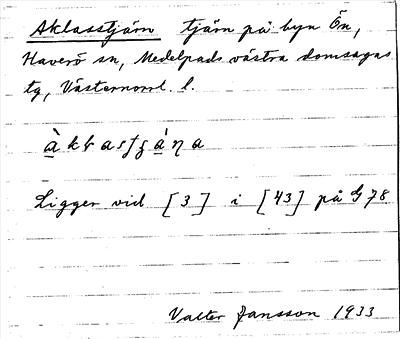 Aklasstjärn tjärn på byn Ön,
Haverö sn, Medelpads västra domsagas
tg, Västernorrl. l.
Ligger vid [3] i [43] på G 78
Valter Jansson 1933